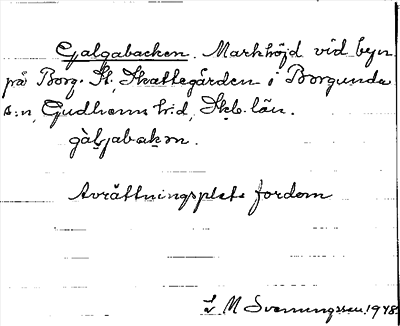 Galgabacken. Markhöjd vid byn
på Borg. St. Skattegården i Borgunda
s:n, Gudhems h:d, Skb. län.
gàljabakən.
Avrättningsplats fordom
L M Svenungsson 1948